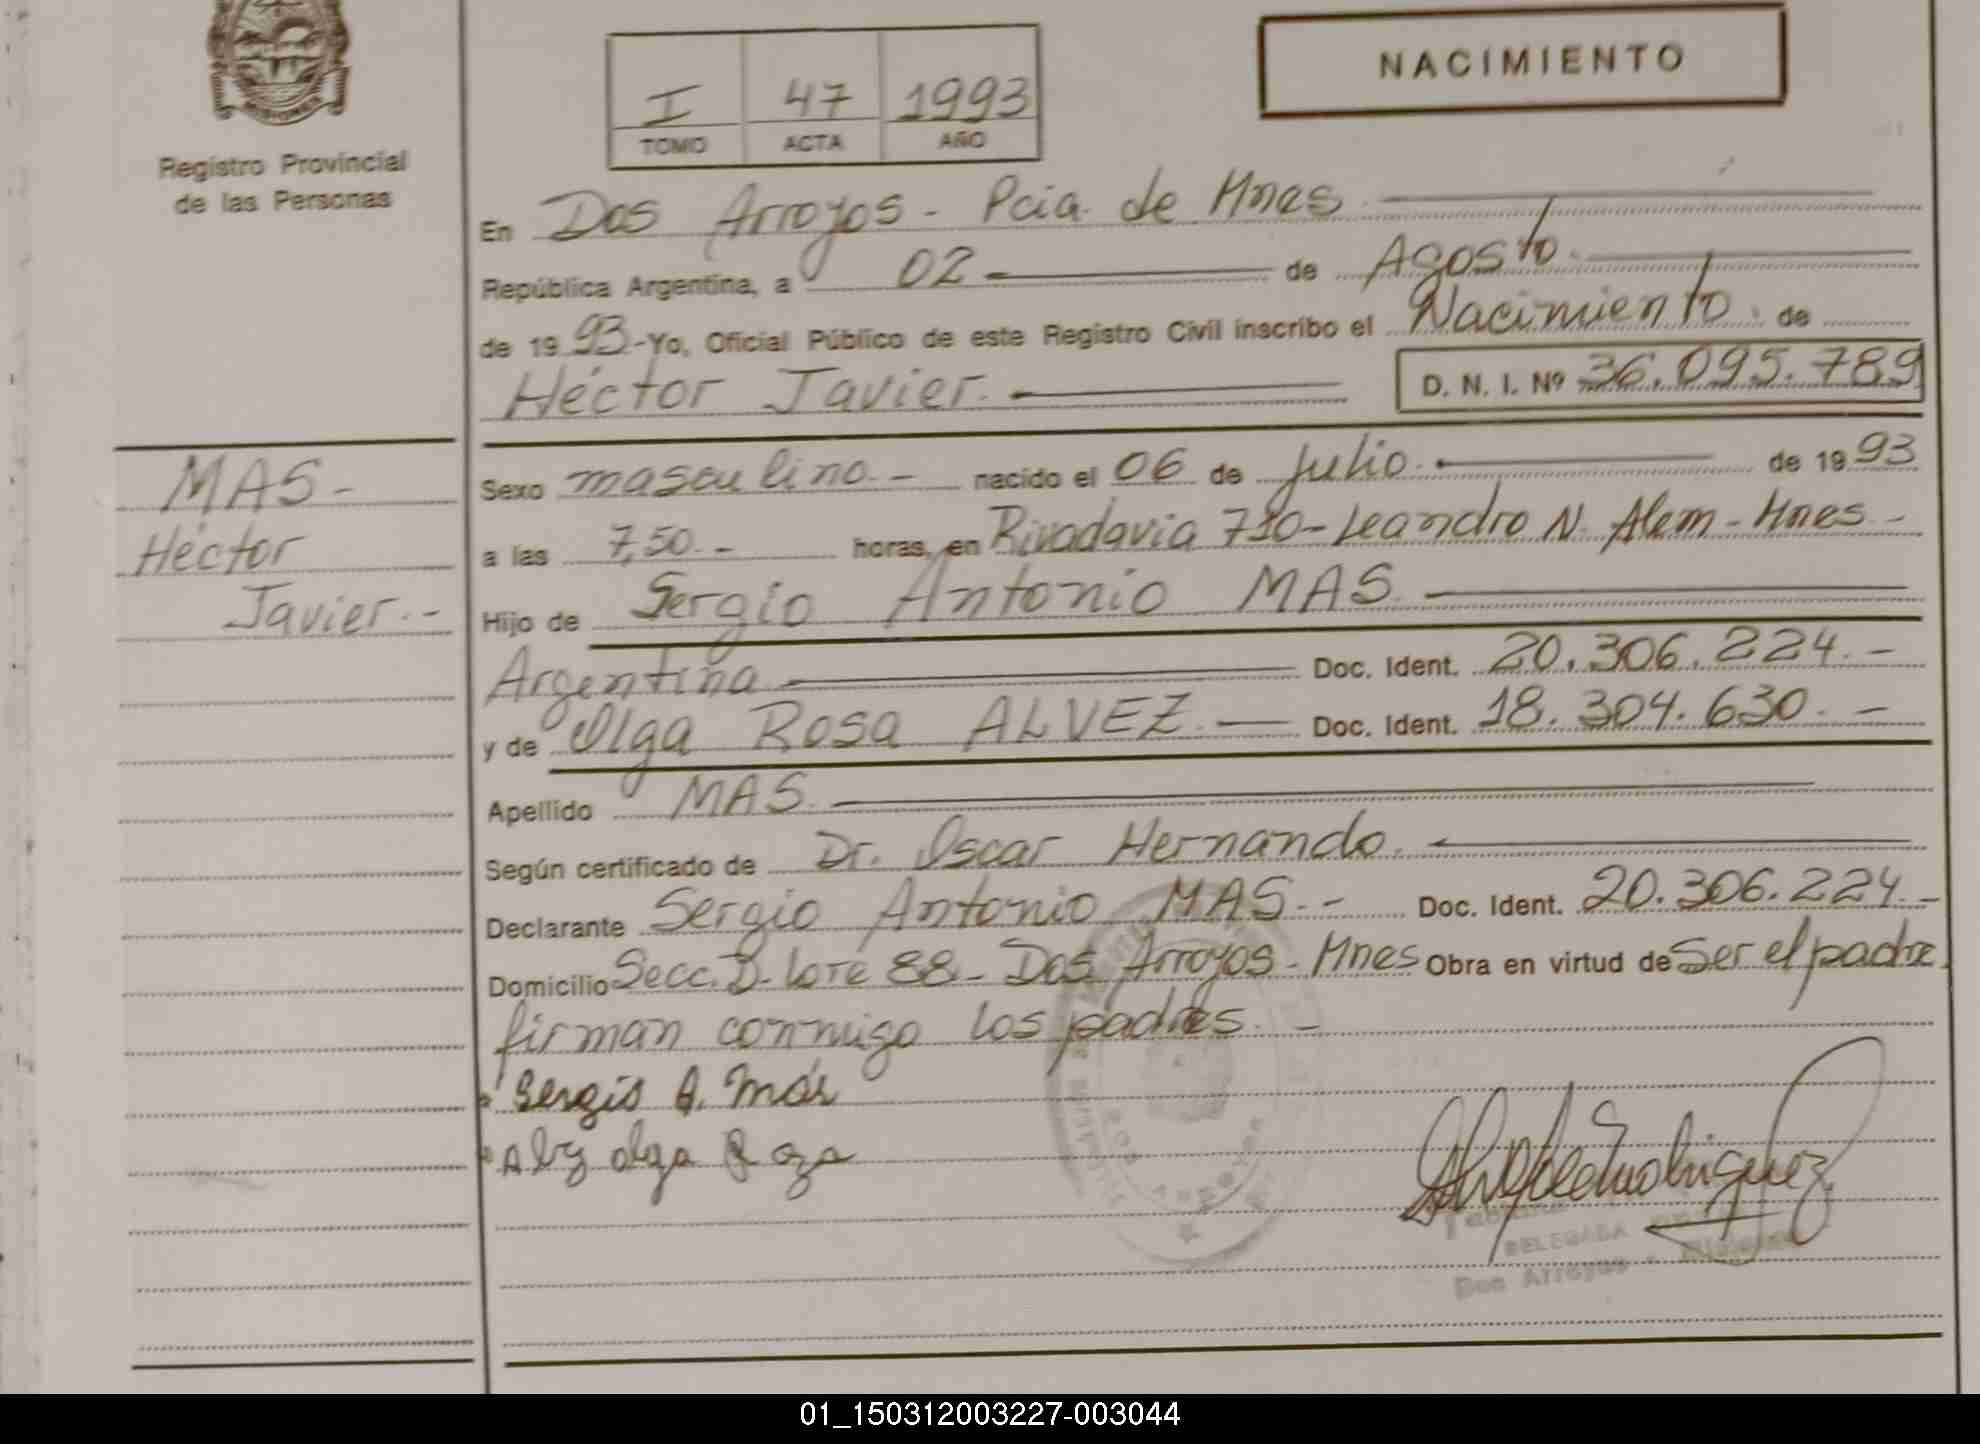 MISIONES
Registro Provincial
de las Personas
I 47 1993
TOMO ACTA AÑO
NACIMIENTO
En Dos Arroyos - Pcia. de Mnes
República Argentina, a 02 de Agosto
de 1993 - Yo, Oficial Público de este Registro Civil inscribo el Nacimiento. de
Héctor Javier. D. N. I. Nº 36.095.789
MAS -
Héctor
Javier. -
Sexo masculino. - nacido el 06 de Julio. de 1993
a las 7,50. - horas, en Rivadavia 710 - Leandro N. Alem - Mnes -
Hijo de Sergio Antonio MAS.
Argentina Doc. Ident. 20.306.224. -
y de Olga Rosa ALVEZ. Doc. Ident. 18.304.630. -
Apellido MAS.
Según certificado de Dr. Oscar Hernando.
Declarante Sergio Antonio MAS. - Doc. Ident. 20.306.224. -
Domicilio Secc. D. Lote 88 - Dos Arroyos - Mnes Obra en virtud de Ser el padre.
firman conmigo los padres. -
Sergio A. Más
Alvz olga Roza
DELEGADA
Dos Arroyos - Misiones
01_150312003227-003044